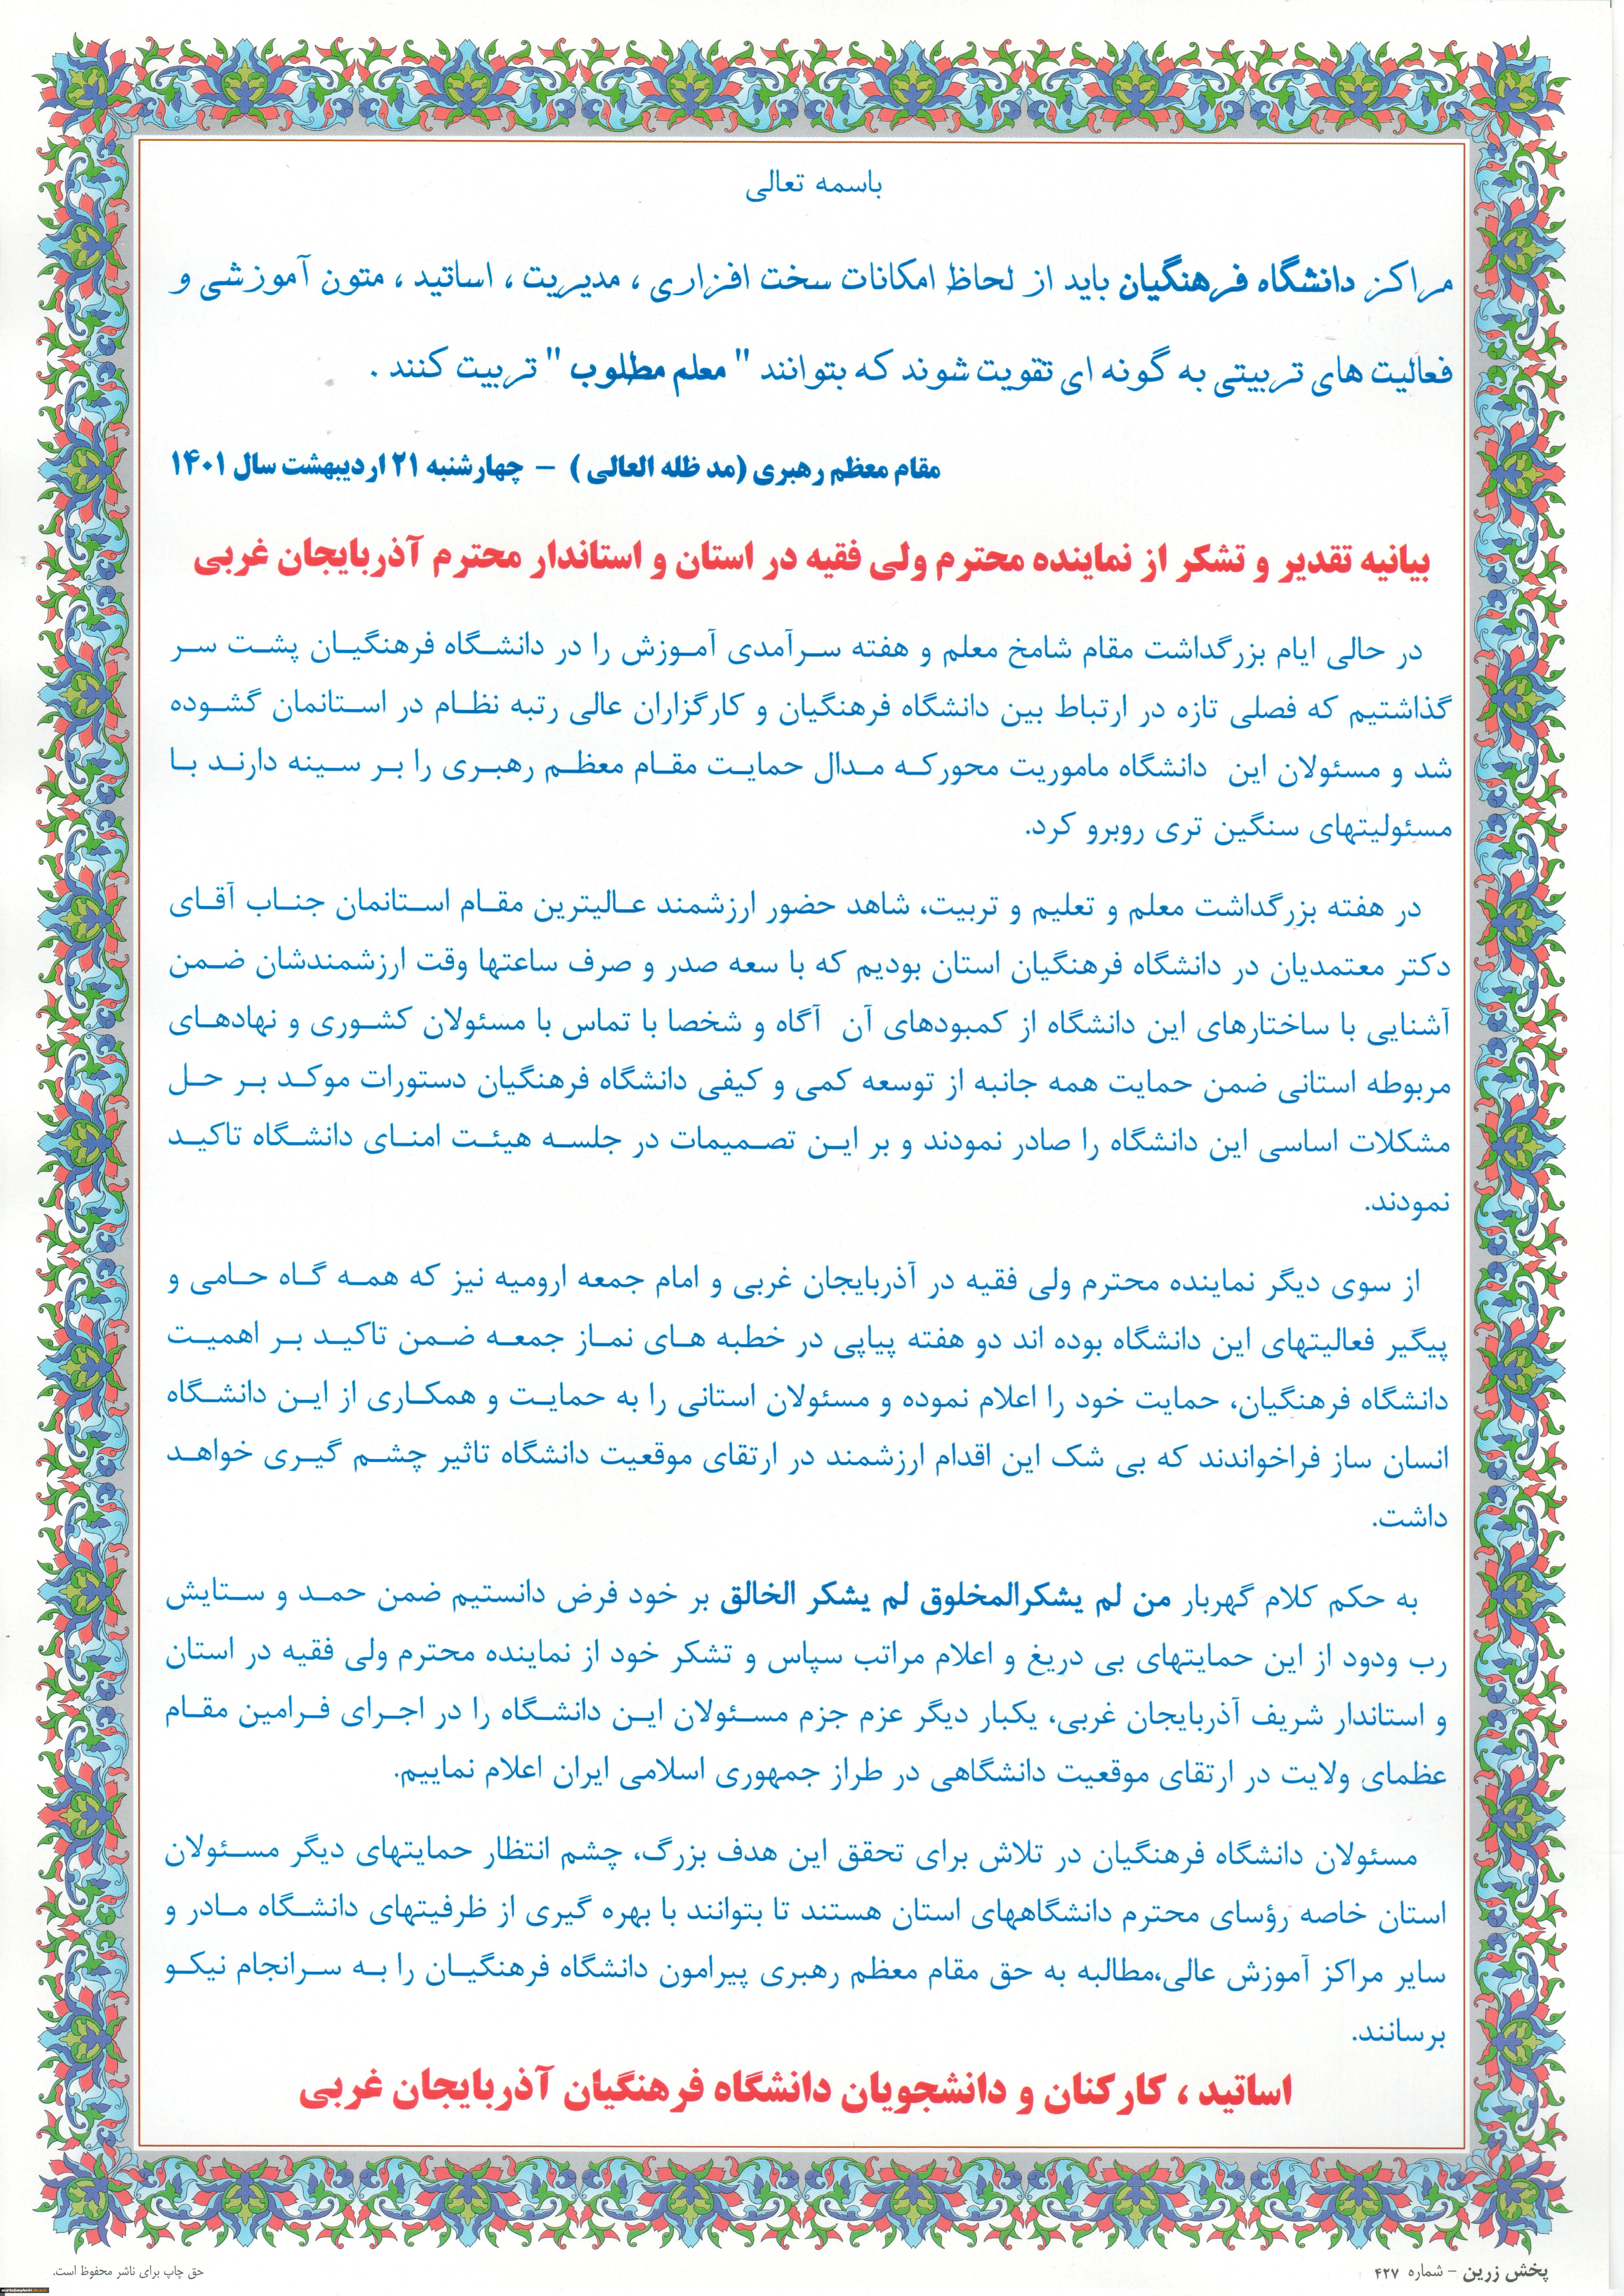 باسمه تعالی
مراکز دانشگاه فرهنگیان باید از لحاظ امکانات سخت افزاری ، مدیریت ، اساتید ، متون آموزشی و
فعالیت های تربیتی به گونه ای تقویت شوند که بتوانند " معلم مطلوب " تربیت کنند .
مقام معظم رهبری (مد ظله العالی ) – چهارشنبه ۲۱ اردیبهشت سال ۱۴۰۱
بیانیه تقدیر و تشکر از نماینده محترم ولی فقیه در استان و استاندار محترم آذربایجان غربی
در حالی ایام بزرگداشت مقام شامخ معلم و هفته سرآمدی آموزش را در دانشگاه فرهنگیان پشت سر
گذاشتیم که فصلی تازه در ارتباط بین دانشگاه فرهنگیان و کارگزاران عالی رتبه نظام در استانمان گشوده
شد و مسئولان این دانشگاه ماموریت محورکه مدال حمایت مقام معظم رهبری را بر سینه دارند با
مسئولیتهای سنگین تری روبرو کرد.
در هفته بزرگداشت معلم و تعلیم و تربیت، شاهد حضور ارزشمند عالیترین مقام استانمان جناب آقای
دکتر معتمدیان در دانشگاه فرهنگیان استان بودیم که با سعه صدر و صرف ساعتها وقت ارزشمندشان ضمن
آشنایی با ساختارهای این دانشگاه از کمبودهای آن آگاه و شخصا با تماس با مسئولان کشوری و نهادهای
مربوطه استانی ضمن حمایت همه جانبه از توسعه کمی و کیفی دانشگاه فرهنگیان دستورات موکد بر حل
مشکلات اساسی این دانشگاه را صادر نمودند و بر این تصمیمات در جلسه هیئت امنای دانشگاه تاکید
نمودند.
از سوی دیگر نماینده محترم ولی فقیه در آذربایجان غربی و امام جمعه ارومیه نیز که همه گاه حامی و
پیگیر فعالیتهای این دانشگاه بوده اند دو هفته پیاپی در خطبه های نماز جمعه ضمن تاکید بر اهمیت
دانشگاه فرهنگیان، حمایت خود را اعلام نموده و مسئولان استانی را به حمایت و همکاری از این دانشگاه
انسان ساز فراخواندند که بی شک این اقدام ارزشمند در ارتقای موقعیت دانشگاه تاثیر چشم گیری خواهد
داشت.
به حکم کلام گهربار من لم یشکرالمخلوق لم یشکر الخالق بر خود فرض دانستیم ضمن حمد و ستایش
رب ودود از این حمایتهای بی دریغ و اعلام مراتب سپاس و تشکر خود از نماینده محترم ولی فقیه در استان
و استاندار شریف آذربایجان غربی، یکبار دیگر عزم جزم مسئولان این دانشگاه را در اجرای فرامین مقام
عظمای ولایت در ارتقای موقعیت دانشگاهی در طراز جمهوری اسلامی ایران اعلام نماییم.
مسئولان دانشگاه فرهنگیان در تلاش برای تحقق این هدف بزرگ، چشم انتظار حمایتهای دیگر مسئولان
استان خاصه رؤسای محترم دانشگاههای استان هستند تا بتوانند با بهره گیری از ظرفیتهای دانشگاه مادر و
سایر مراکز آموزش عالی،مطالبه به حق مقام معظم رهبری پیرامون دانشگاه فرهنگیان را به سرانجام نیکو
برسانند.
اساتید ، کارکنان و دانشجویان دانشگاه فرهنگیان آذربایجان غربی
پخش زرین – شماره ۴۲۷
حق چاپ برای ناشر محفوظ است.